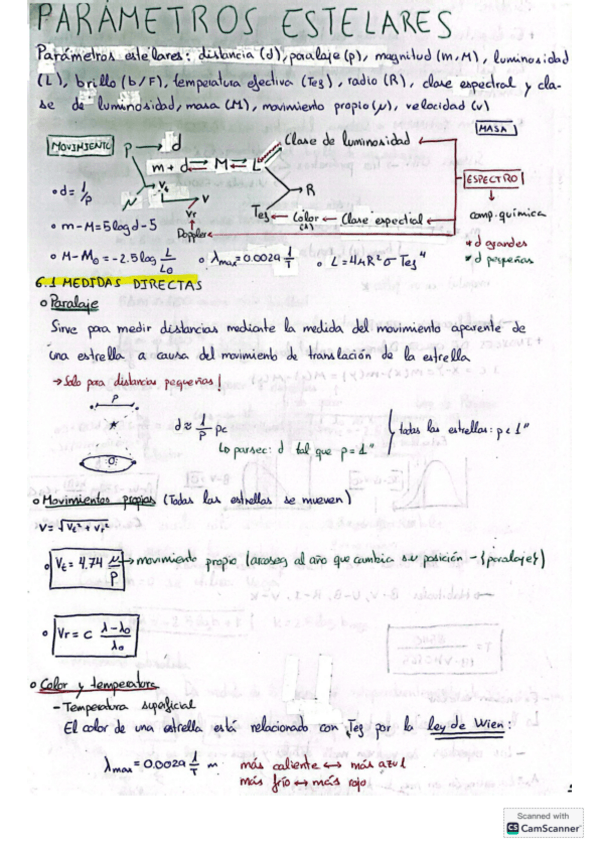 PARÁMETROS ESTELARES
Parámetros estelares: distancia (d), paralaje (p), magnitud (m,M), luminosidad
(L), brillo (b/F), temperatura efectiva (Tef), radio (R), clase espectral y cla-
se de luminosidad, masa (M), movimiento propio (μ), velocidad (v)
MASA
MOVIMIENTO p → d
Clase de luminosidad
m + d ⇄ M ⇄ L
ESPECTRO
μ → Vt → V
R
• d = 1/p
Vr
Tef ← Color ← Clase espectral
(λ)
comp. química
• m-M = 5 log d - 5
Doppler
* d grandes
* d pequeñas
• M-M₀ = -2.5 log L/L₀ • λmax = 0.0029 1/T • L = 4πR² σ Tef⁴
6.1 MEDIDAS DIRECTAS
o Paralaje
Sirve para medir distancias mediante la medida del movimiento aparente de
una estrella a causa del movimiento de translación de la estrella
→ Solo para distancias pequeñas!
p
d ≈ 1/p pc
todas las estrellas: p < 1"
↳ parsec: d tal que p = 1"
o Movimientos propios (Todas las estrellas se mueven)
V = √Vt² + Vr²
o Vt = 4.74 μ/p → movimiento propio (arcoseg al año que cambia su posición - {paralaje})
o Vr = c λ-λ₀/λ₀
o Color y temperatura
- Temperatura superficial
El color de una estrella está relacionado con Tef por la ley de Wien:
λmax = 0.0029 1/T m más caliente ↔ más azul
más frío ↔ más rojo
Scanned with
CS CamScanner